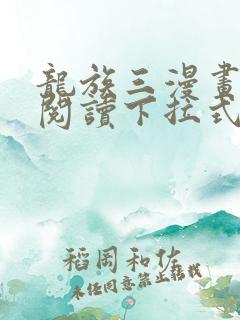 龍族三漫畫
閱讀下拉式
稻岡和佐
未经同意禁止转载